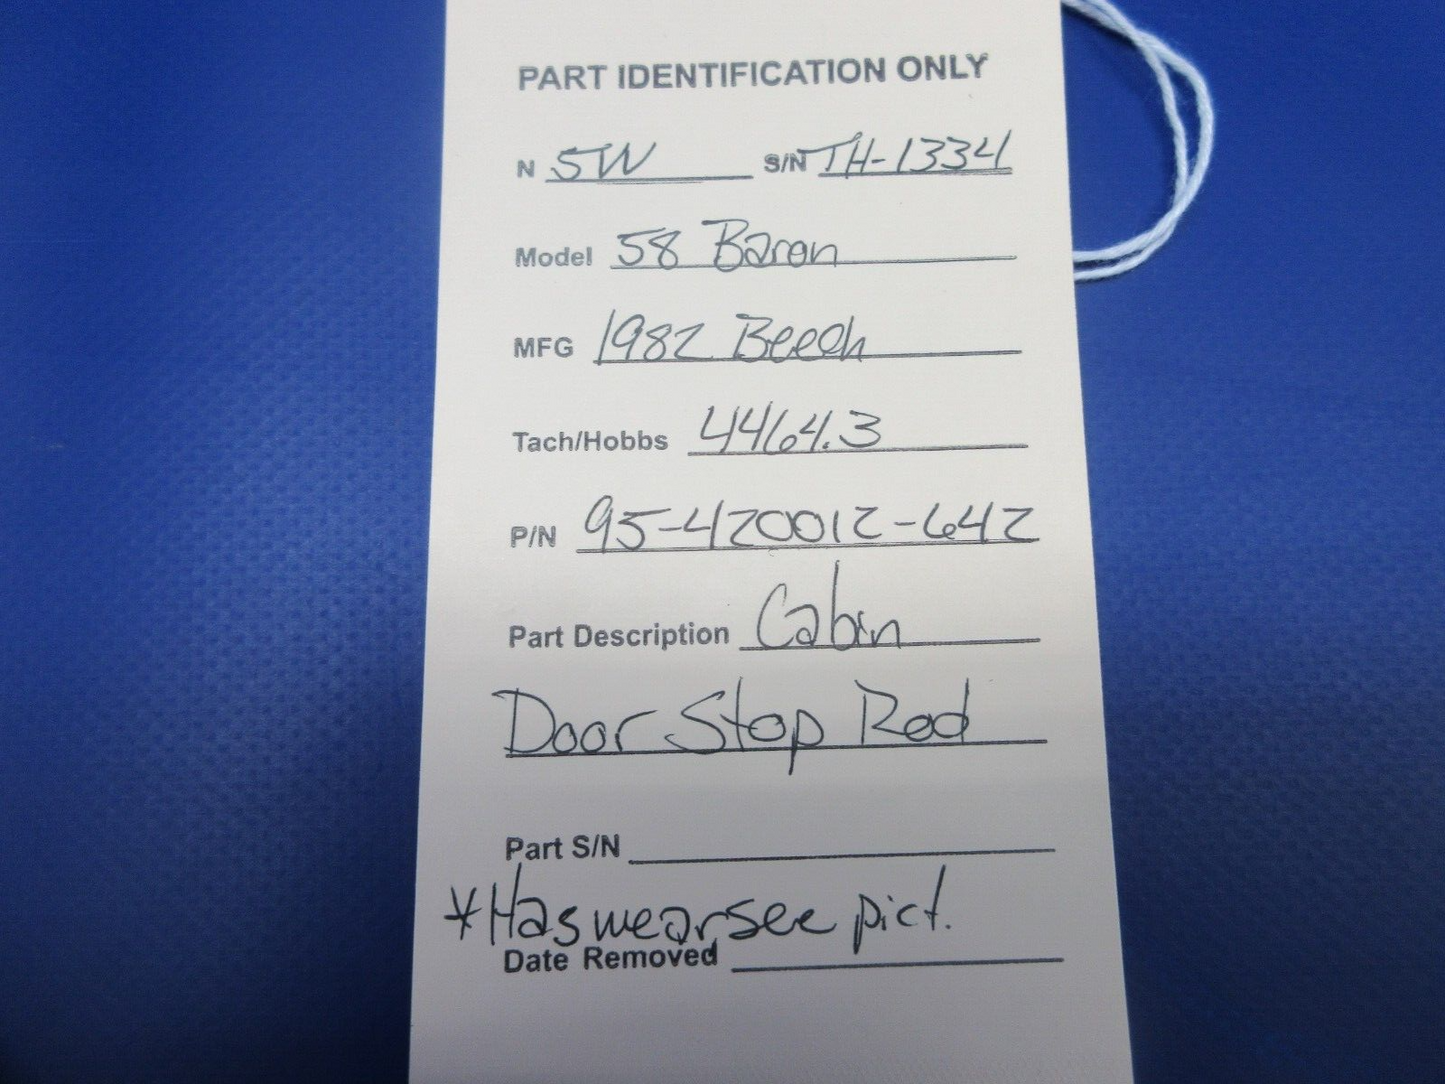 PART IDENTIFICATION ONLY
N 5W S/N TH-1334
Model 58 Baron
MFG 1982 Beech
Tach/Hobbs 4464.3
P/N 95-420012-642
Part Description Cabin
Door Stop Rod
Part S/N
*Has wear see pict.
Date Removed